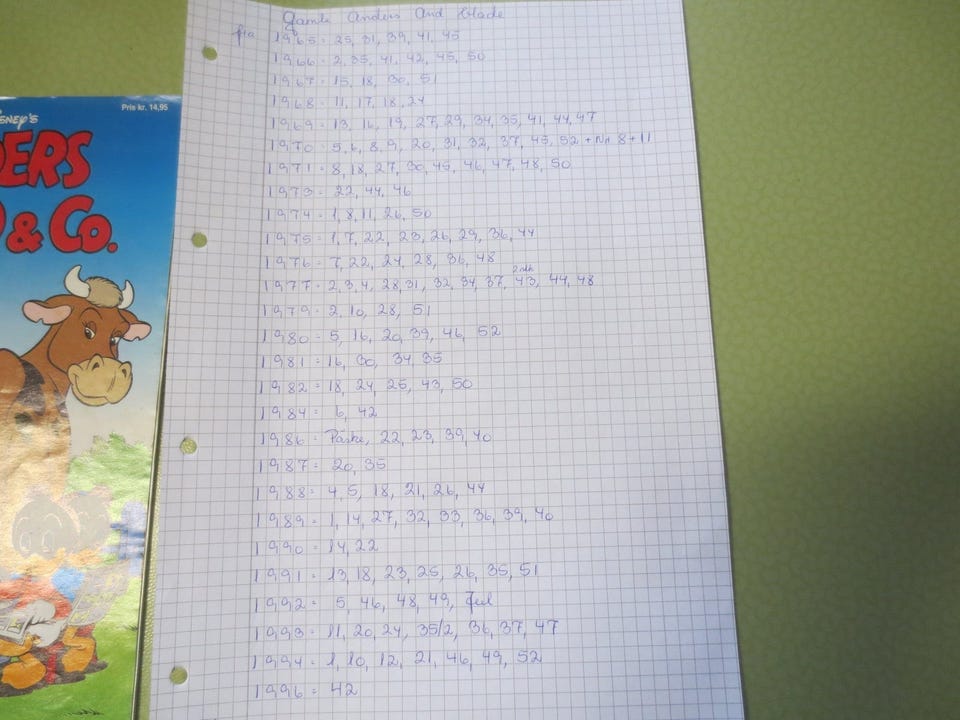 Gamle Anders And blade
fra 1965 = 25, 31, 39, 41, 45
1966 = 2, 35, 41, 42, 45, 50
1967 = 15, 18, 30, 51
1968 = 11, 17, 18, 24
1969 = 13, 16, 19, 27, 29, 34, 35, 41, 44, 47
1970 = 5, 6, 8, 9, 20, 31, 32, 37, 45, 52 + Nr. 8 + 11
1971 = 8, 18, 27, 30, 45, 46, 47, 48, 50
1973 = 22, 44, 46
1974 = 1, 8, 11, 26, 50
1975 = 1, 7, 22, 23, 26, 29, 36, 44
1976 = 7, 22, 24, 28, 36, 48
2 stk
1977 = 2, 3, 4, 28, 31, 32, 34, 37, 43, 44, 48
1979 = 2, 10, 28, 51
1980 = 5, 16, 20, 39, 46, 52
1981 = 16, 30, 34, 35
1982 = 18, 24, 25, 43, 50
1984 = 6, 42
1986 = Påske, 22, 23, 39, 40
1987 = 20, 35
1988 = 4, 5, 18, 21, 26, 44
1989 = 1, 14, 27, 32, 33, 36, 39, 40
1990 = 14, 22
1991 = 13, 18, 23, 25, 26, 35, 51
1992 = 5, 46, 48, 49, Jul
1993 = 11, 20, 24, 35/2, 36, 37, 47
1994 = 1, 10, 12, 21, 46, 49, 52
1996 = 42
Pris kr. 14,95
SNEY'S
DERS
& Co.